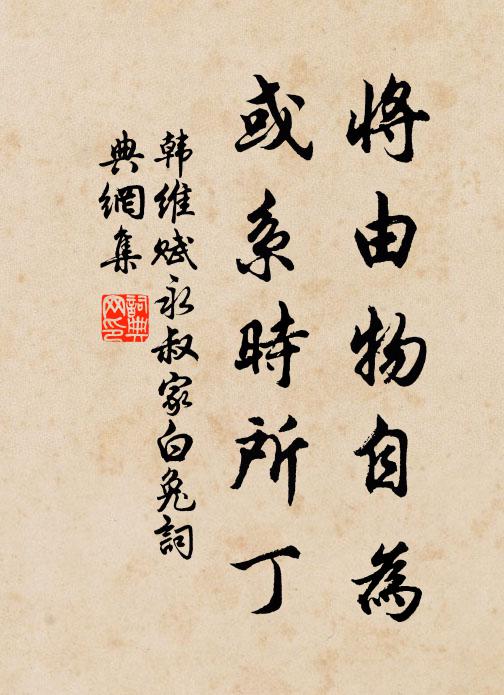 將由物自為
或系時所丁
韩維赋永叔家白兔詞
典網集
詞典
网印